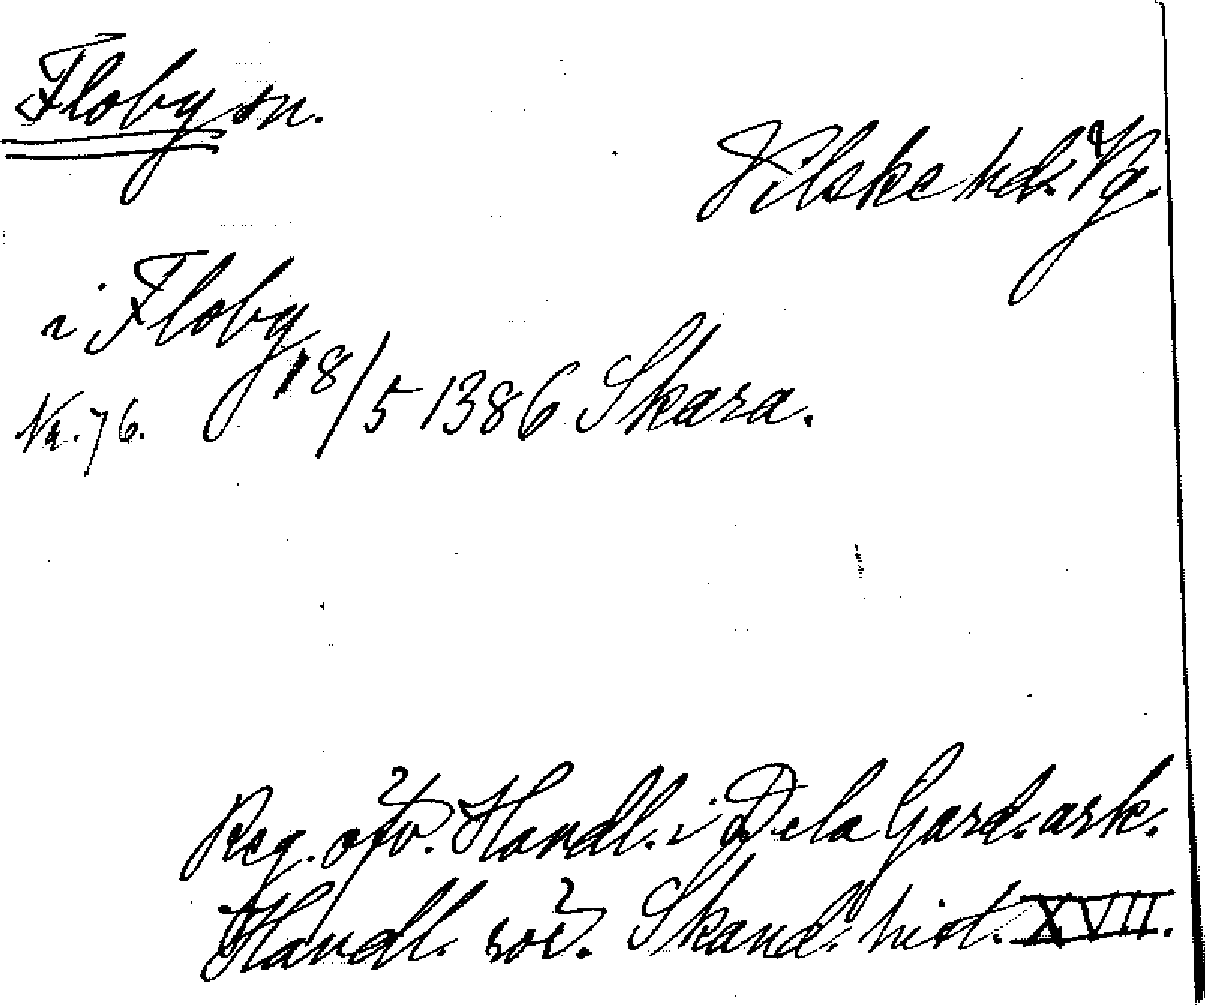 Floby sn.
Vilske hd. Vg.
i Floby
18/5 1386 Skara.
Nr. 76.
Reg. öfv. Handl. i De la Gard. ark.
Handl. rör. Skand. hist. XVII.